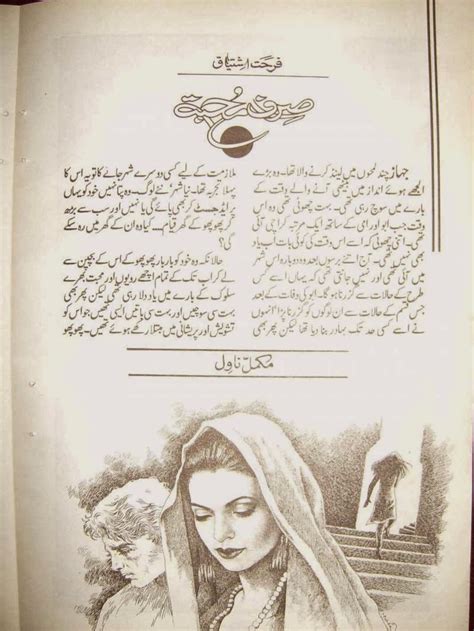 فرحت اشتیاق
صرف محبت
جہاز چند لمحوں میں لینڈ کرنے والا تھا۔ وہ بڑے
الجھے ہوئے انداز میں بیٹھی آنے والے وقت کے
بارے میں سوچ رہی تھی۔ بہت چھوٹی تھی وہ اس
وقت جب ابو اور امی کے ساتھ ایک مرتبہ کراچی آئی
تھی۔ اتنی چھوٹی کہ اسے اس وقت کی کوئی بات اب یاد
بھی نہیں تھی۔ آج اتنے برسوں بعد وہ دوبارہ اس شہر
میں آئی تھی اور نہیں جانتی تھی کہ یہاں اسے کس
طرح کے حالات سے گزرنا ہوگا۔ ابو کی وفات کے بعد
جس قسم کے حالات سے اسے گزرنا پڑا تھا انہوں
نے اسے کسی حد تک بہادر بنا دیا تھا لیکن پھر بھی
ملازمت کے لیے کسی دوسرے شہر جانے کا تو یہ اس کا
پہلا تجربہ تھا۔ نیا شہر نئے لوگ۔ وہ پتا نہیں خود کو یہاں
ایڈجسٹ کر بھی پائے گی یا نہیں اور سب سے بڑھ
کر پھوپھو کے گھر قیام... کیا وہ ان کے گھر میں رہ سکے
گی؟
حالانکہ وہ خود کو بار بار پھوپھو کے اس کے بچپن سے
لے کر اب تک کے تمام اچھے رویوں اور محبت بھرے
سلوک کے بارے میں یاد دلا رہی تھی لیکن پھر بھی
بہت سی سوچیں اور بہت سی باتیں ایسی تھیں جو اس کو
تشویش اور پریشانی میں مبتلا رکھے ہوئے تھیں۔ پھوپھو
مکمل ناول